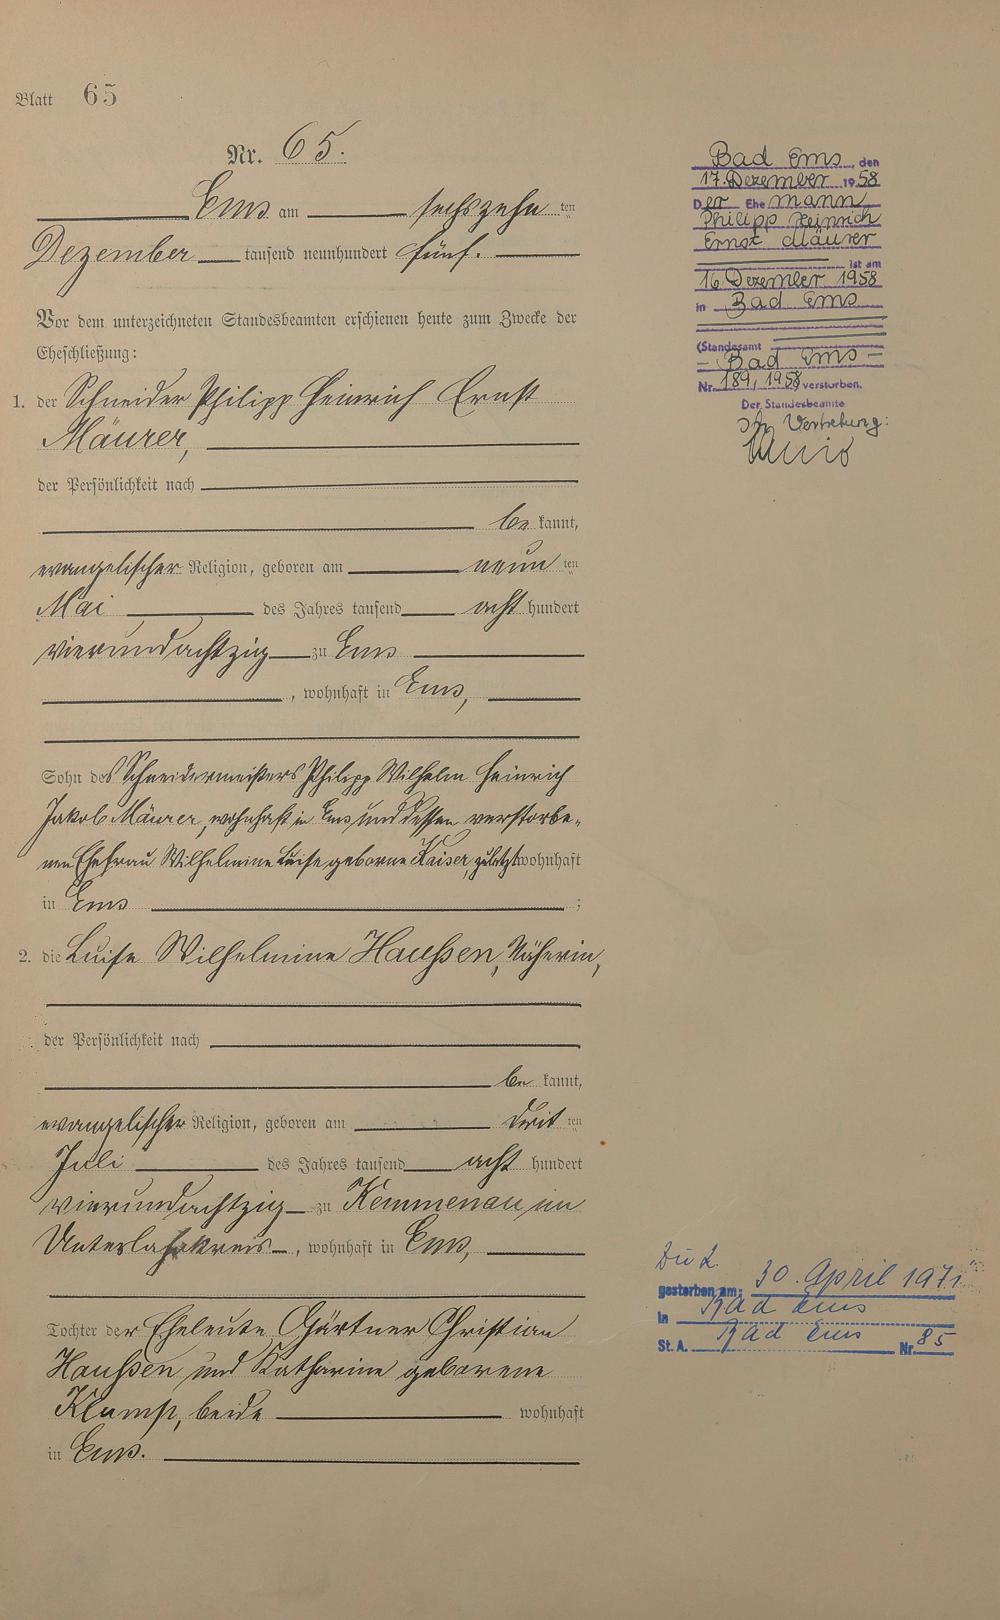 Blatt 65
Nr. 65.
Ems am sechszehn ten
Dezember tausend neunhundert fünf.
Vor dem unterzeichneten Standesbeamten erschienen heute zum Zwecke der
Eheschließung:
1. der Schneider Philipp Heinrich Ernst
Mäurer,
der Persönlichkeit nach
be kannt,
evangelischer Religion, geboren am neun ten
Mai des Jahres tausend acht hundert
vierundachtzig zu Ems
, wohnhaft in Ems,
Sohn des Schneidermeisters Philipp Wilhelm Heinrich
Jakob Mäurer, wohnhaft in Ems und dessen verstorbe-
nen Ehefrau Wilhelmine Luise geborne Kaiser, zuletzt wohnhaft
in Ems ;
2. die Luise Wilhelmine Haußen, Näherin,
der Persönlichkeit nach
be kannt,
evangelischer Religion, geboren am drit ten
Juli des Jahres tausend acht hundert
vierundachtzig zu Kemmenau im
Unterlahnkreis , wohnhaft in Ems,
Tochter der Eheleute Gärtner Christian
Haußen und Katharine geborene
Klamp, beide wohnhaft
in Ems.
Bad Ems, den
17. Dezember 1958
Der Ehe mann
Philipp Heinrich
Ernst Mäurer
ist am
16. Dezember 1958
in Bad Ems
(Standesamt
- Bad Ems -
Nr. 189, 1958 verstorben.
Der Standesbeamte
In Vertretung:
gestorben am: 30. April 1971
in Bad Ems
St. A. Bad Ems Nr. 85